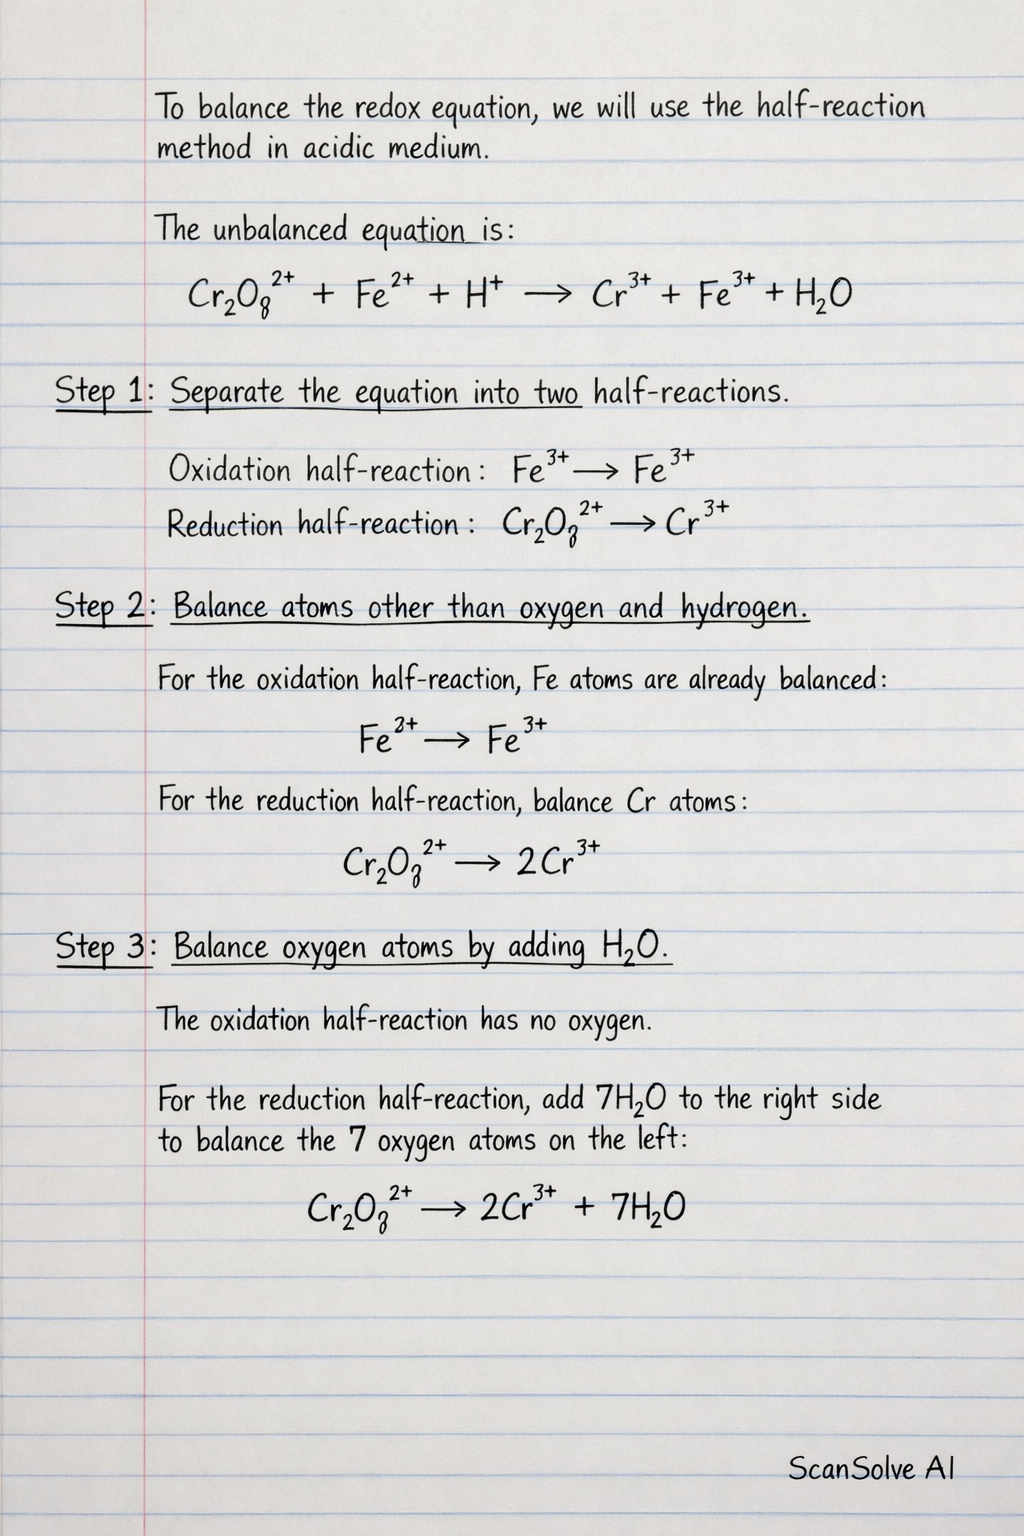 To balance the redox equation, we will use the half-reaction
method in acidic medium.
The unbalanced equation is:
Cr₂O₈²⁺ + Fe²⁺ + H⁺ → Cr³⁺ + Fe³⁺ + H₂O
Step 1: Separate the equation into two half-reactions.
Oxidation half-reaction: Fe³⁺ → Fe³⁺
Reduction half-reaction: Cr₂O₈²⁺ → Cr³⁺
Step 2: Balance atoms other than oxygen and hydrogen.
For the oxidation half-reaction, Fe atoms are already balanced:
Fe²⁺ → Fe³⁺
For the reduction half-reaction, balance Cr atoms:
Cr₂O₈²⁺ → 2Cr³⁺
Step 3: Balance oxygen atoms by adding H₂O.
The oxidation half-reaction has no oxygen.
For the reduction half-reaction, add 7H₂O to the right side
to balance the 7 oxygen atoms on the left:
Cr₂O₈²⁺ → 2Cr³⁺ + 7H₂O
ScanSolve AI